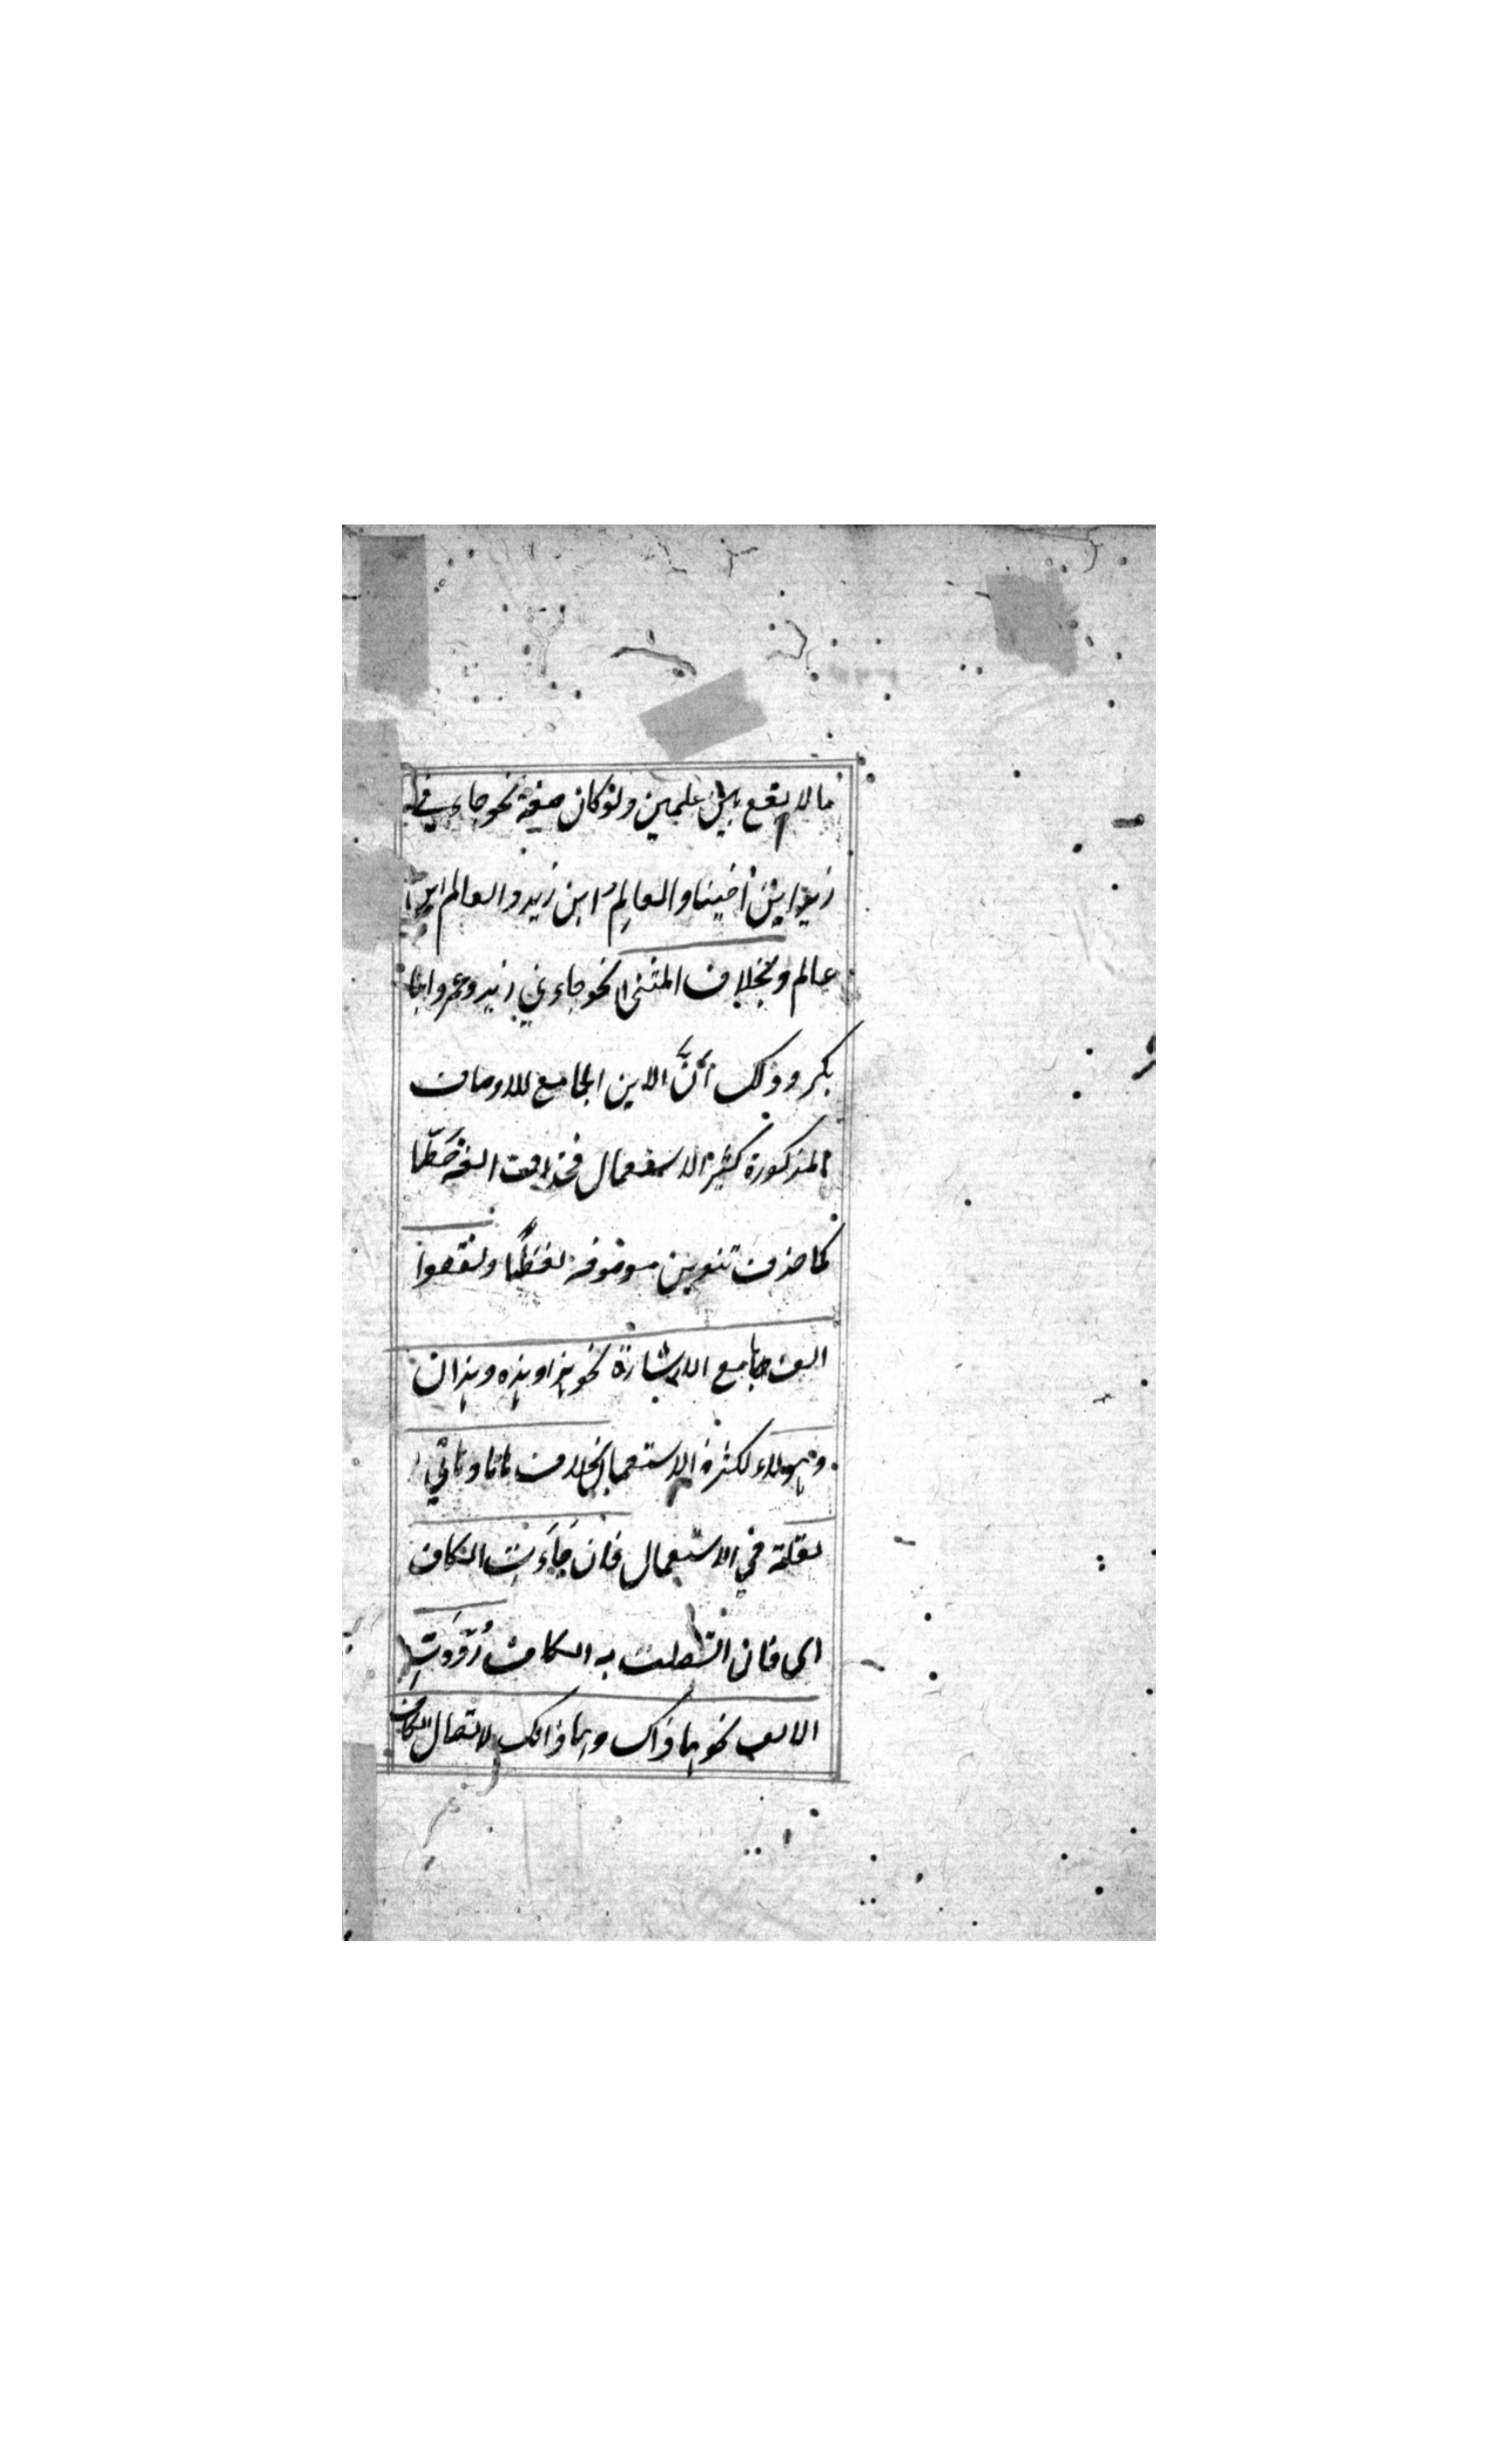 ما لا يقع بين علمين ولو كان صفة نحو جاءني
زيد ابن أخينا والعالم ابن زيد والعالم ابن
عالم وبخلاف المثنى نحو جاءني زيد وعمرو ابنا
بكر وذلك أنَّ الابن الجامع للاوصاف
المذكورة كثير الاستعمال فحذفت الفه خَطّا
كما حذف تنوين موصوفه لفظًا ونقصوا
الف جامع الاشارة نحو هذا وهذه وهذان
وهولاء لكثرة الاستعمال بخلاف هاتا وهاتي
لقلته في الاستعمال فان جَاءَت الكاف
اى فان اتصلت به الكاف رُدَّت
الالف نحو هاذاك وهاذانك لاتصال الكاف